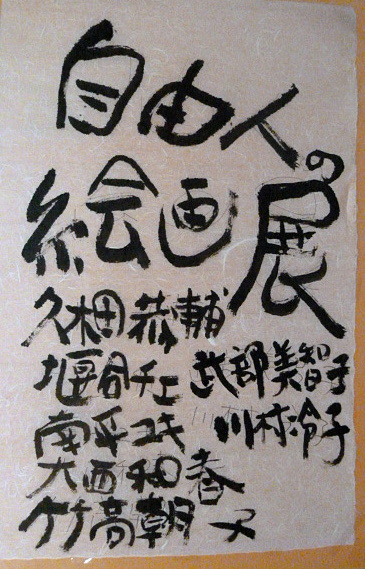 自由人の
絵画展
恭輔
チエ 武部美智子
南平ユキ 川村冷子
大西和春
竹高朝子